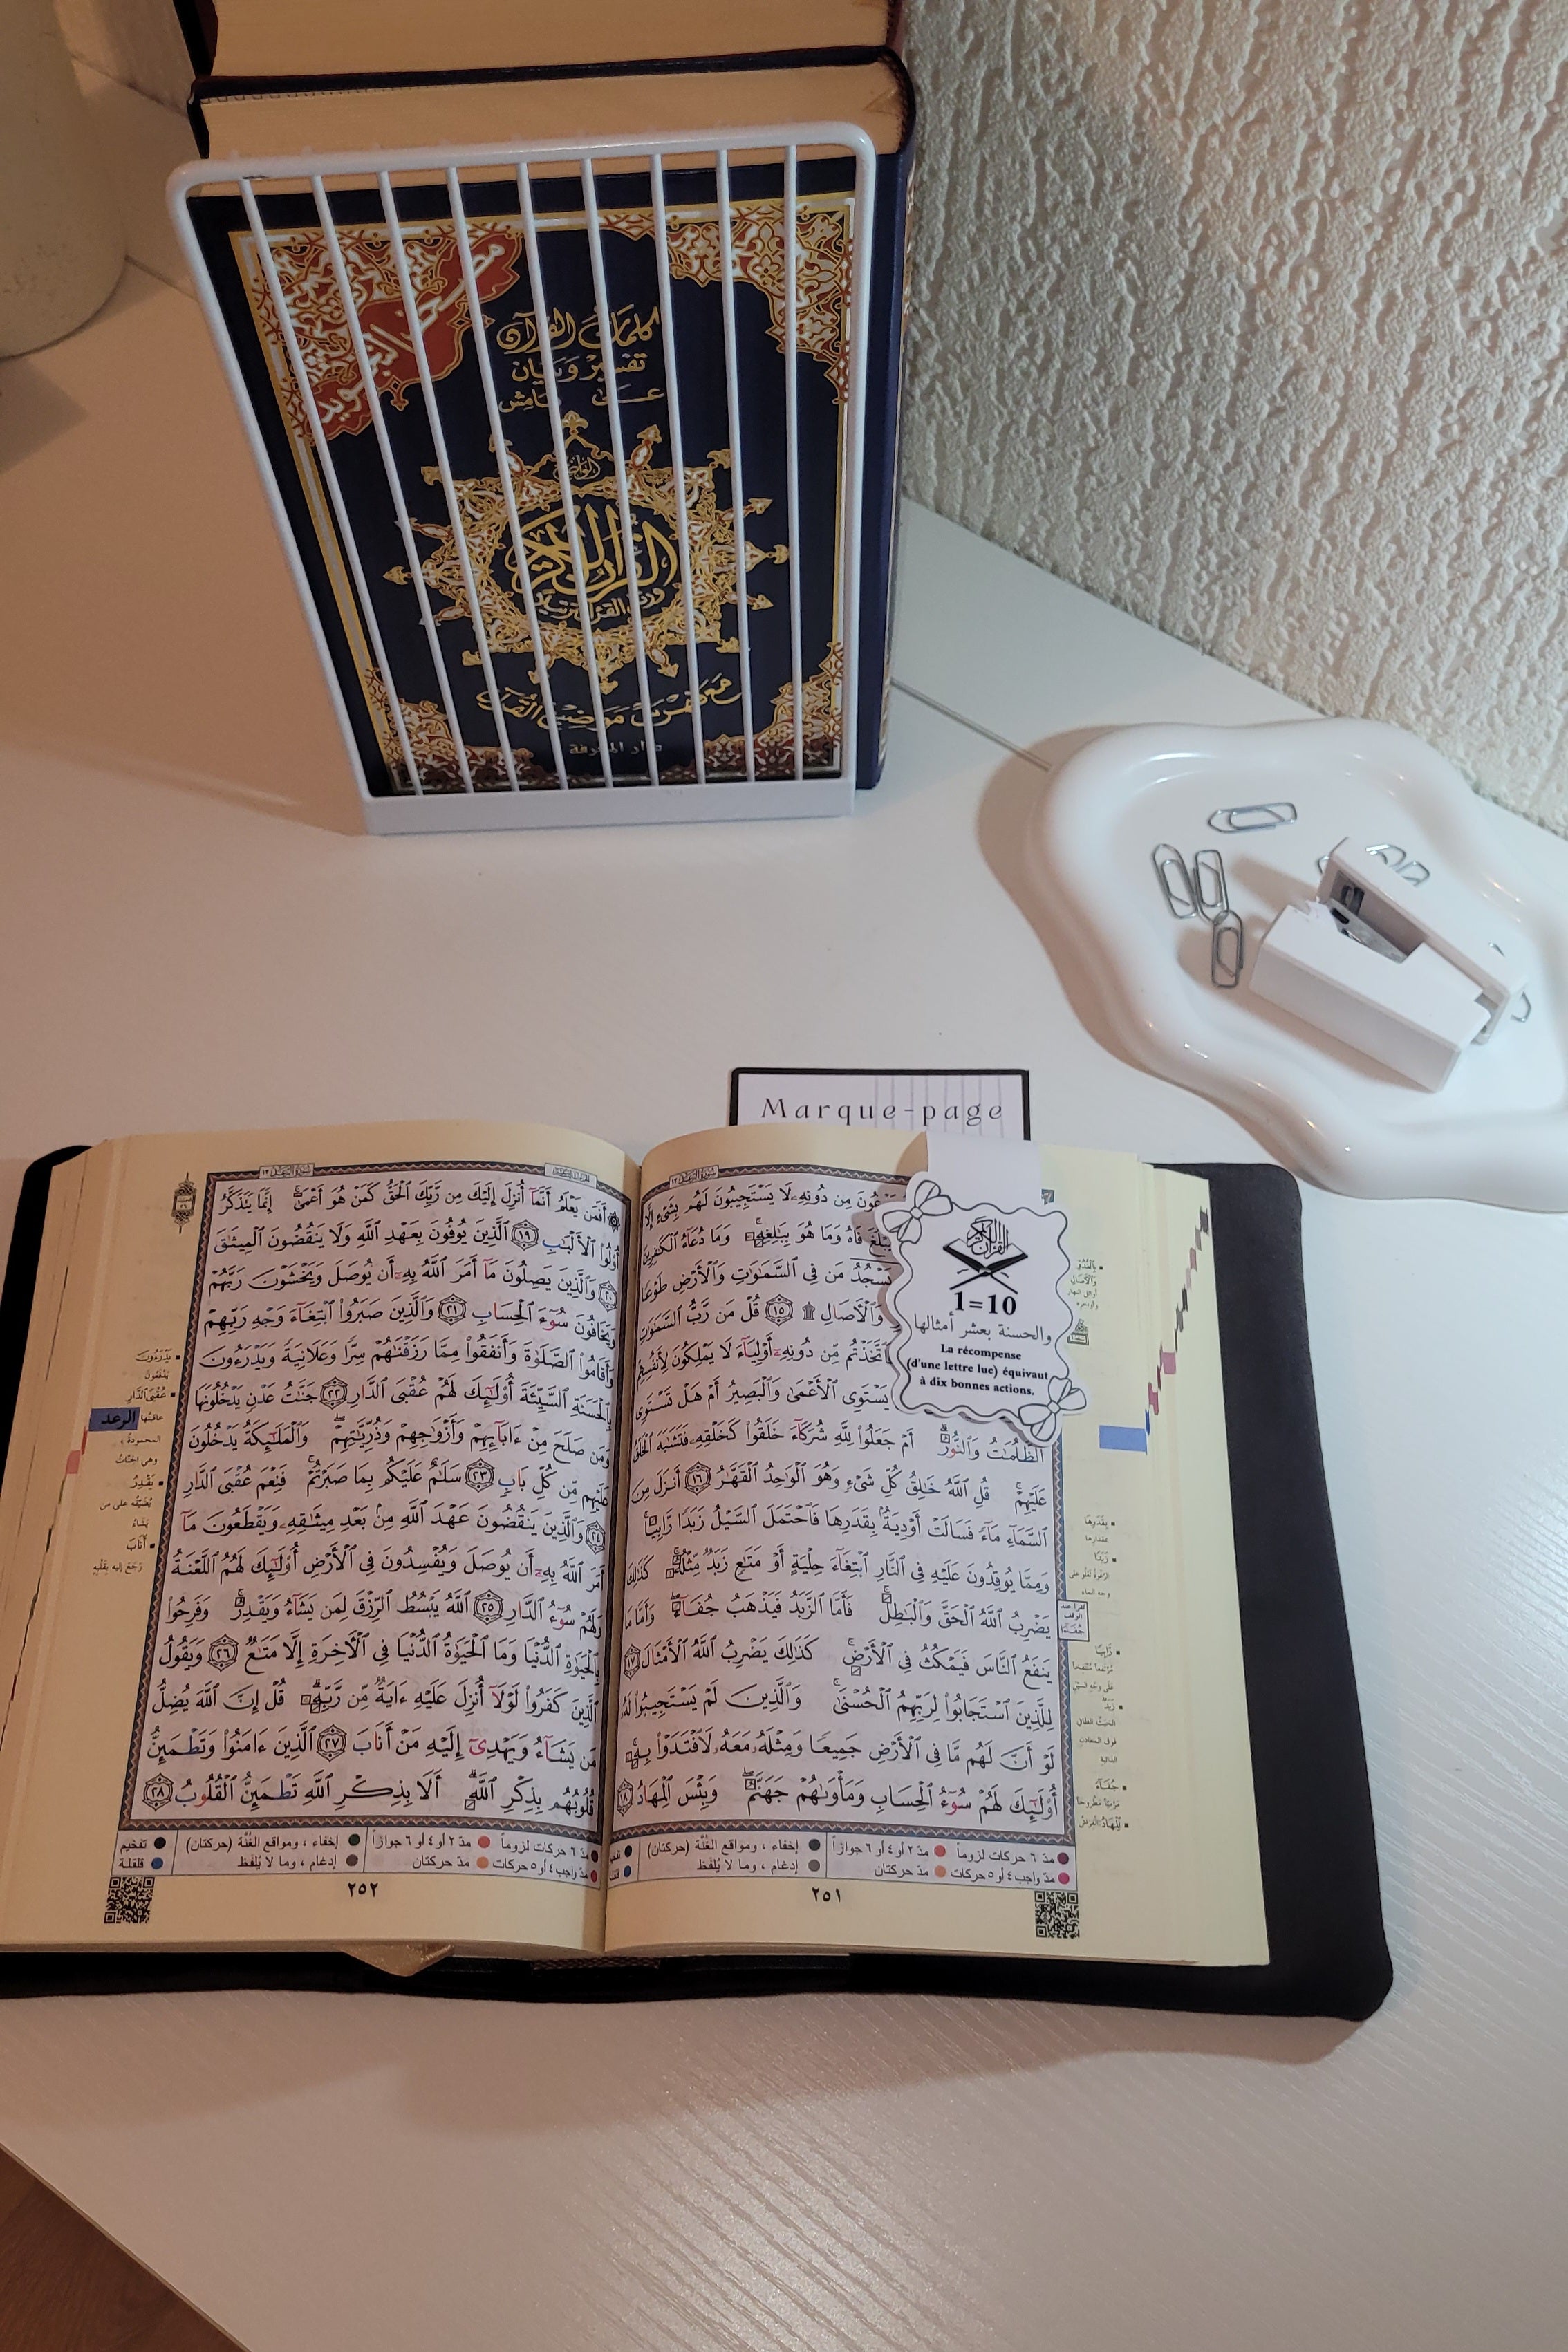 مصحف التجويد
كلمات القرآن
تفسير وبيان
على هامش
القرآن الكريم
ورتل القرآن ترتيلا
دار المعرفة
Marque-page
القرآن الكريم
1=10
والحسنة بعشر أمثالها
La récompense
(d'une lettre lue) équivaut
à dix bonnes actions.
سُورَةُ الرَّعْدِ ١٣
مِن دُونِهِۦ لَا يَسْتَجِيبُونَ لَهُم بِشَىْءٍ إِلَّا
فَاهُ وَمَا هُوَ بِبَٰلِغِهِۦ وَمَا دُعَآءُ ٱلْكَٰفِرِينَ
يَسْجُدُ مَن فِى ٱلسَّمَٰوَٰتِ وَٱلْأَرْضِ طَوْعًا
وَٱلْأَصَالِ ۩ ١٥ قُلْ مَن رَّبُّ ٱلسَّمَٰوَٰتِ
أَفَٱتَّخَذْتُم مِّن دُونِهِۦٓ أَوْلِيَآءَ لَا يَمْلِكُونَ لِأَنفُسِهِمْ
يَسْتَوِى ٱلْأَعْمَىٰ وَٱلْبَصِيرُ أَمْ هَلْ تَسْتَوِى
ٱلظُّلُمَٰتُ وَٱلنُّورُ أَمْ جَعَلُوا۟ لِلَّهِ شُرَكَآءَ خَلَقُوا۟ كَخَلْقِهِۦ فَتَشَٰبَهَ ٱلْخَلْقُ
عَلَيْهِمْ قُلِ ٱللَّهُ خَٰلِقُ كُلِّ شَىْءٍ وَهُوَ ٱلْوَٰحِدُ ٱلْقَهَّٰرُ ١٦ أَنزَلَ مِنَ
ٱلسَّمَآءِ مَآءً فَسَالَتْ أَوْدِيَةٌۢ بِقَدَرِهَا فَٱحْتَمَلَ ٱلسَّيْلُ زَبَدًا رَّابِيًا
وَمِمَّا يُوقِدُونَ عَلَيْهِ فِى ٱلنَّارِ ٱبْتِغَآءَ حِلْيَةٍ أَوْ مَتَٰعٍ زَبَدٌ مِّثْلُهُۥ كَذَٰلِكَ
يَضْرِبُ ٱللَّهُ ٱلْحَقَّ وَٱلْبَٰطِلَ فَأَمَّا ٱلزَّبَدُ فَيَذْهَبُ جُفَآءً وَأَمَّا مَا
يَنفَعُ ٱلنَّاسَ فَيَمْكُثُ فِى ٱلْأَرْضِ كَذَٰلِكَ يَضْرِبُ ٱللَّهُ ٱلْأَمْثَالَ ١٧
لِلَّذِينَ ٱسْتَجَابُوا۟ لِرَبِّهِمُ ٱلْحُسْنَىٰ وَٱلَّذِينَ لَمْ يَسْتَجِيبُوا۟ لَهُۥ
لَوْ أَنَّ لَهُم مَّا فِى ٱلْأَرْضِ جَمِيعًا وَمِثْلَهُۥ مَعَهُۥ لَٱفْتَدَوْا۟ بِهِۦٓ
أُو۟لَٰٓئِكَ لَهُمْ سُوٓءُ ٱلْحِسَابِ وَمَأْوَىٰهُمْ جَهَنَّمُ وَبِئْسَ ٱلْمِهَادُ ١٨
مدّ ٦ حركات لزوماً مدّ ٢ أو ٤ أو ٦ جوازاً إخفاء ، ومواقع الغُنَّة (حركتان)
مدّ واجب ٤ أو ٥ حركات مدّ حركتان إدغام ، وما لا يُلفَظ
٢٥١
سُورَةُ الرَّعْدِ ١٣
أَفَمَن يَعْلَمُ أَنَّمَآ أُنزِلَ إِلَيْكَ مِن رَّبِّكَ ٱلْحَقُّ كَمَنْ هُوَ أَعْمَىٰٓ إِنَّمَا يَتَذَكَّرُ
أُو۟لُوا۟ ٱلْأَلْبَٰبِ ١٩ ٱلَّذِينَ يُوفُونَ بِعَهْدِ ٱللَّهِ وَلَا يَنقُضُونَ ٱلْمِيثَٰقَ
٢٠ وَٱلَّذِينَ يَصِلُونَ مَآ أَمَرَ ٱللَّهُ بِهِۦٓ أَن يُوصَلَ وَيَخْشَوْنَ رَبَّهُمْ
وَيَخَافُونَ سُوٓءَ ٱلْحِسَابِ ٢١ وَٱلَّذِينَ صَبَرُوا۟ ٱبْتِغَآءَ وَجْهِ رَبِّهِمْ
وَأَقَامُوا۟ ٱلصَّلَوٰةَ وَأَنفَقُوا۟ مِمَّا رَزَقْنَٰهُمْ سِرًّا وَعَلَانِيَةً وَيَدْرَءُونَ
بِٱلْحَسَنَةِ ٱلسَّيِّئَةَ أُو۟لَٰٓئِكَ لَهُمْ عُقْبَى ٱلدَّارِ ٢٢ جَنَّٰتُ عَدْنٍ يَدْخُلُونَهَا
وَمَن صَلَحَ مِنْ ءَابَآئِهِمْ وَأَزْوَٰجِهِمْ وَذُرِّيَّٰتِهِمْ وَٱلْمَلَٰٓئِكَةُ يَدْخُلُونَ
عَلَيْهِم مِّن كُلِّ بَابٍ ٢٣ سَلَٰمٌ عَلَيْكُم بِمَا صَبَرْتُمْ فَنِعْمَ عُقْبَى ٱلدَّارِ
٢٤ وَٱلَّذِينَ يَنقُضُونَ عَهْدَ ٱللَّهِ مِنۢ بَعْدِ مِيثَٰقِهِۦ وَيَقْطَعُونَ مَآ
أَمَرَ ٱللَّهُ بِهِۦٓ أَن يُوصَلَ وَيُفْسِدُونَ فِى ٱلْأَرْضِ أُو۟لَٰٓئِكَ لَهُمُ ٱللَّعْنَةُ
وَلَهُمْ سُوٓءُ ٱلدَّارِ ٢٥ ٱللَّهُ يَبْسُطُ ٱلرِّزْقَ لِمَن يَشَآءُ وَيَقْدِرُ وَفَرِحُوا۟
بِٱلْحَيَوٰةِ ٱلدُّنْيَا وَمَا ٱلْحَيَوٰةُ ٱلدُّنْيَا فِى ٱلْأَخِرَةِ إِلَّا مَتَٰعٌ ٢٦ وَيَقُولُ
ٱلَّذِينَ كَفَرُوا۟ لَوْلَآ أُنزِلَ عَلَيْهِ ءَايَةٌ مِّن رَّبِّهِۦ قُلْ إِنَّ ٱللَّهَ يُضِلُّ
مَن يَشَآءُ وَيَهْدِىٓ إِلَيْهِ مَنْ أَنَابَ ٢٧ ٱلَّذِينَ ءَامَنُوا۟ وَتَطْمَئِنُّ
قُلُوبُهُم بِذِكْرِ ٱللَّهِ أَلَا بِذِكْرِ ٱللَّهِ تَطْمَئِنُّ ٱلْقُلُوبُ ٢٨
يَدْرَءُونَ
يَدْفَعُونَ
عُقْبَى ٱلدَّارِ
عاقبتُها
الرعد
المحمودةُ ،
وهي الجنّاتُ
يَقْدِرُ
يُضَيِّقُه على من
يَشَاءُ
أَنَابَ
رَجَعَ إليه بقَلْبِهِ
مدّ ٦ حركات لزوماً مدّ ٢ أو ٤ أو ٦ جوازاً إخفاء ، ومواقع الغُنَّة (حركتان) تفخيم
مدّ واجب ٤ أو ٥ حركات مدّ حركتان إدغام ، وما لا يُلفَظ قلقلة
٢٥٢